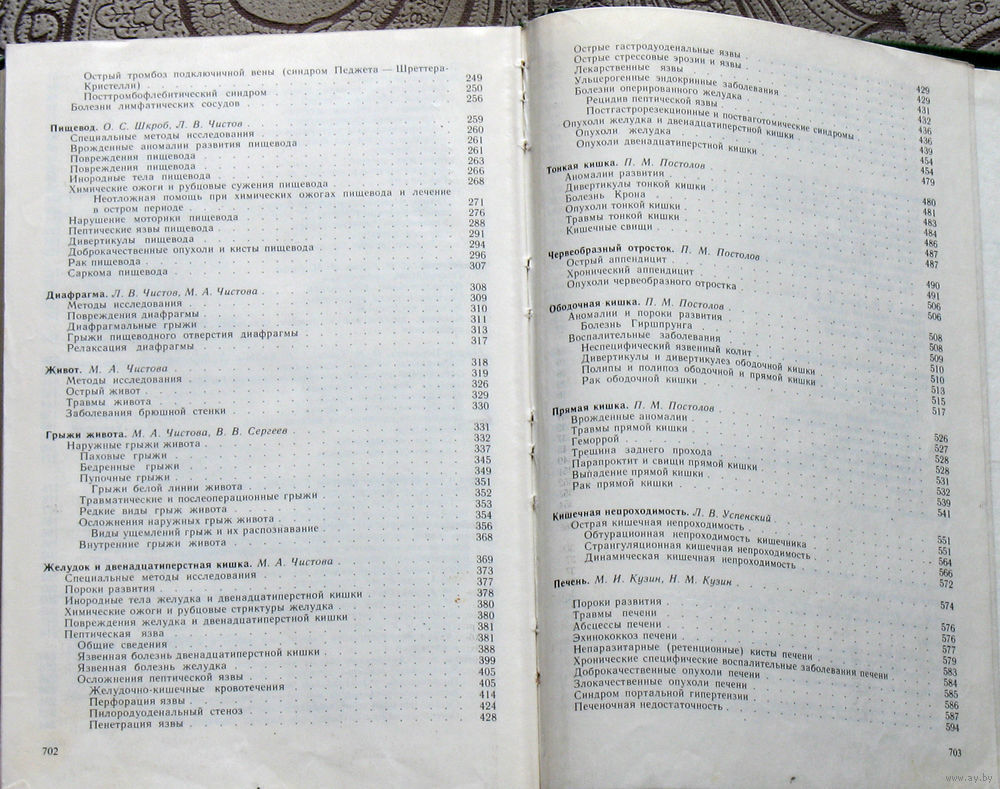 Острый тромбоз подключичной вены (синдром Педжета — Шреттера-
Кристелли) 249
Посттромбофлебитический синдром 250
Болезни лимфатических сосудов 256
Пищевод. О. С. Шкроб, Л. В. Чистов 259
Специальные методы исследования 260
Врожденные аномалии развития пищевода 261
Повреждения пищевода 261
Повреждения пищевода 263
Инородные тела пищевода 266
Химические ожоги и рубцовые сужения пищевода 268
Неотложная помощь при химических ожогах пищевода и лечение
в остром периоде 271
Нарушение моторики пищевода 276
Пептические язвы пищевода 288
Дивертикулы пищевода 291
Доброкачественные опухоли и кисты пищевода 294
Рак пищевода 296
Саркома пищевода 307
Диафрагма. Л. В. Чистов, М. А. Чистова 308
Методы исследования 309
Повреждения диафрагмы 310
Диафрагмальные грыжи 311
Грыжи пищеводного отверстия диафрагмы 313
Релаксация диафрагмы 317
Живот. М. А. Чистова 318
Методы исследования 319
Острый живот 326
Травмы живота 329
Заболевания брюшной стенки 330
Грыжи живота. М. А. Чистова, В. В. Сергеев 331
Наружные грыжи живота 332
Паховые грыжи 337
Бедренные грыжи 345
Пупочные грыжи 349
Грыжи белой линии живота 351
Травматические и послеоперационные грыжи 352
Редкие виды грыж живота 353
Осложнения наружных грыж живота 354
Виды ущемлений грыж и их распознавание 356
Внутренние грыжи живота 368
Желудок и двенадцатиперстная кишка. М. А. Чистова 369
Специальные методы исследования 373
Пороки развития 377
Инородные тела желудка и двенадцатиперстной кишки 378
Химические ожоги и рубцовые стриктуры желудка 380
Повреждения желудка и двенадцатиперстной кишки 380
Пептическая язва 381
Общие сведения 381
Язвенная болезнь двенадцатиперстной кишки 388
Язвенная болезнь желудка 399
Осложнения пептической язвы 405
Желудочно-кишечные кровотечения 405
Перфорация язвы 414
Пилородуоденальный стеноз 424
Пенетрация язвы 428
702
Острые гастродуоденальные язвы 429
Острые стрессовые эрозии и язвы 429
Лекарственные язвы 431
Ульцерогенные эндокринные заболевания 432
Болезни оперированного желудка 436
Рецидив пептической язвы 436
Постгастрорезекционные и постваготомические синдромы 439
Опухоли желудка и двенадцатиперстной кишки 454
Опухоли желудка 454
Опухоли двенадцатиперстной кишки 479
Тонкая кишка. П. М. Постолов 480
Аномалии развития 481
Дивертикулы тонкой кишки 483
Болезнь Крона 484
Опухоли тонкой кишки 486
Травмы тонкой кишки 487
Кишечные свищи 487
Червеобразный отросток. П. М. Постолов 490
Острый аппендицит 491
Хронический аппендицит 506
Опухоли червеобразного отростка 506
Ободочная кишка. П. М. Постолов 508
Аномалии и пороки развития 508
Болезнь Гиршпрунга 509
Воспалительные заболевания 510
Неспецифический язвенный колит 510
Дивертикулы и дивертикулез ободочной кишки 513
Полипы и полипоз ободочной и прямой кишки 515
Рак ободочной кишки 517
Прямая кишка. П. М. Постолов 526
Врожденные аномалии 527
Травмы прямой кишки 528
Геморрой 528
Трещина заднего прохода 531
Парапроктит и свищи прямой кишки 532
Выпадение прямой кишки 539
Рак прямой кишки 541
Кишечная непроходимость. Л. В. Успенский 551
Острая кишечная непроходимость 551
Обтурационная непроходимость кишечника 564
Странгуляционная кишечная непроходимость 566
Динамическая кишечная непроходимость 572
Печень. М. И. Кузин, Н. М. Кузин 574
Пороки развития 576
Травмы печени 576
Абсцессы печени 577
Эхинококкоз печени 579
Непаразитарные (ретенционные) кисты печени 583
Хронические специфические воспалительные заболевания печени 584
Доброкачественные опухоли печени 585
Злокачественные опухоли печени 586
Синдром портальной гипертензии 587
Печеночная недостаточность 594
703
www.ay.by